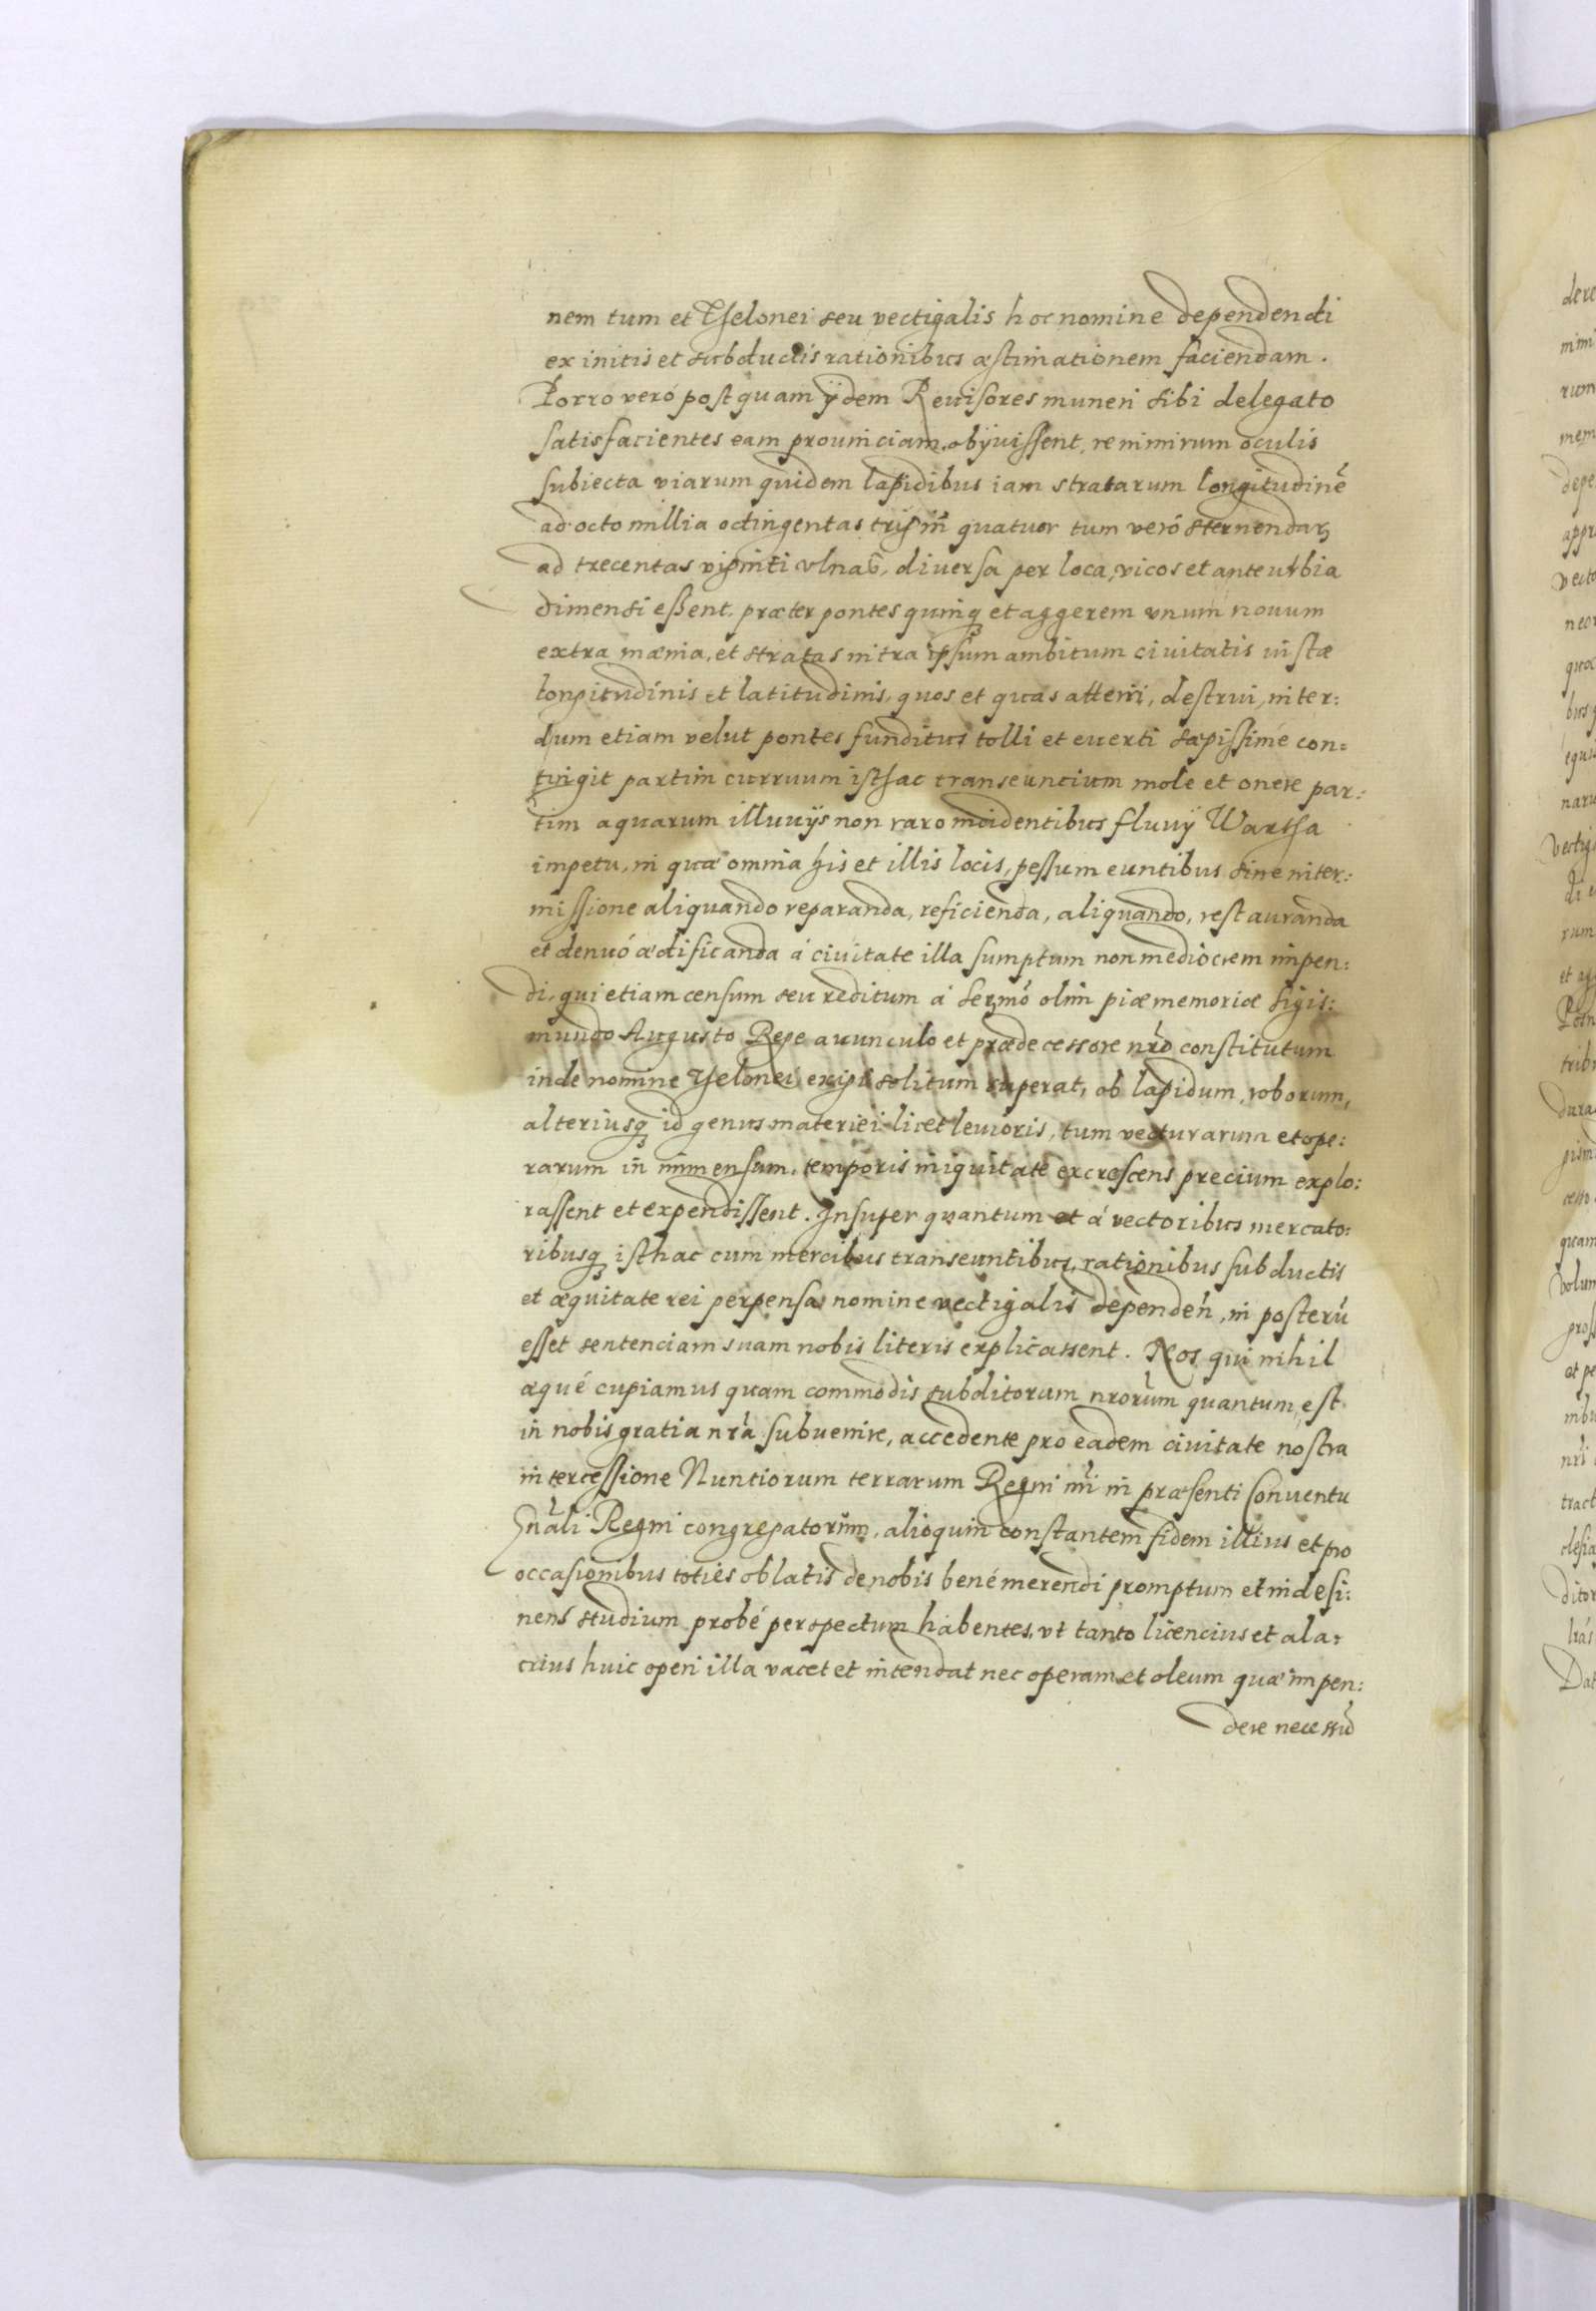 nem tum et Thelonei seu vectigalis hoc nomine dependendi
ex initis et subductis rationibus æstimationem faciendam.
Porro veró postquam ijdem Revisores muneri sibi delegato
satisfacientes eam prouinciam obijuissent, re nimirum oculis
subiecta viarum quidem lapidibus iam stratarum longitudinẽ
ad octo millia octingentas quatuor tum veró sternendarꝫ
ad trecentas viginti vlnas, diuersa per loca, vicos et ante urbia
dimensi essent, præter pontes quinqꝫ et aggerem vnum nouum
extra mænia, et stratas intra ipsum ambitum ciuitatis iustæ
longitudinis et latitudinis, quos et quas atteri, destrui, inter:
dum etiam velut pontes funditus tolli et euerti sæpissimé con=
tingit partim curruum isthac transeuntium mole et onere par:
tim aquarum illuuijs non raro incidentibus fluuij Wartha
impetu, in quæ omnia his et illis locis, pessum euntibus sine inter:
missione aliquando reparanda, reficienda, aliquando, restauranda
et denuó ædificanda á ciuitate illa sumptum non mediocrem impen:
di, qui etiam censum seu reditum á Sermõ olim piæ memoriæ Sigis:
mundo Augusto Rege auunculo et prædecessore nrõ constitutum
inde nomine Thelonei exigi solitum superat, ob lapidum, roborum,
alteriusqꝫ id genus materiei licet leuioris, tum vecturarum et ope:
rarum in immensum, temporis iniquitate excrescens precium explo:
rassent et expendissent. Insuper quantum et á vectoribus mercato:
ribusqꝫ isthac cum mercibus transeuntibus, rationibus subductis
et æquitate rei perpensa nomine vectigalis dependeñ, in posterũ
esset sentenciam suam nobis literis explicassent. Nos qui nihil
æqué cupiamus quam commodis subditorum nrorũm quantum est
in nobis gratia nrã subuenire, accedente pro eadem ciuitate nostra
intercessione Nuntiorum terrarum Regni nri in præsenti Conuentu
Gnãli Regni congregatorum, alioquin constantem fidem illius et pro
occasionibus toties oblatis de nobis bené merendi promptum et indesi:
nens studium probé perspectum habentes, vt tanto licencius et ala:
crius huic operi illa vacet et intendat nec operam et oleum quæ impen:
dere necessũ